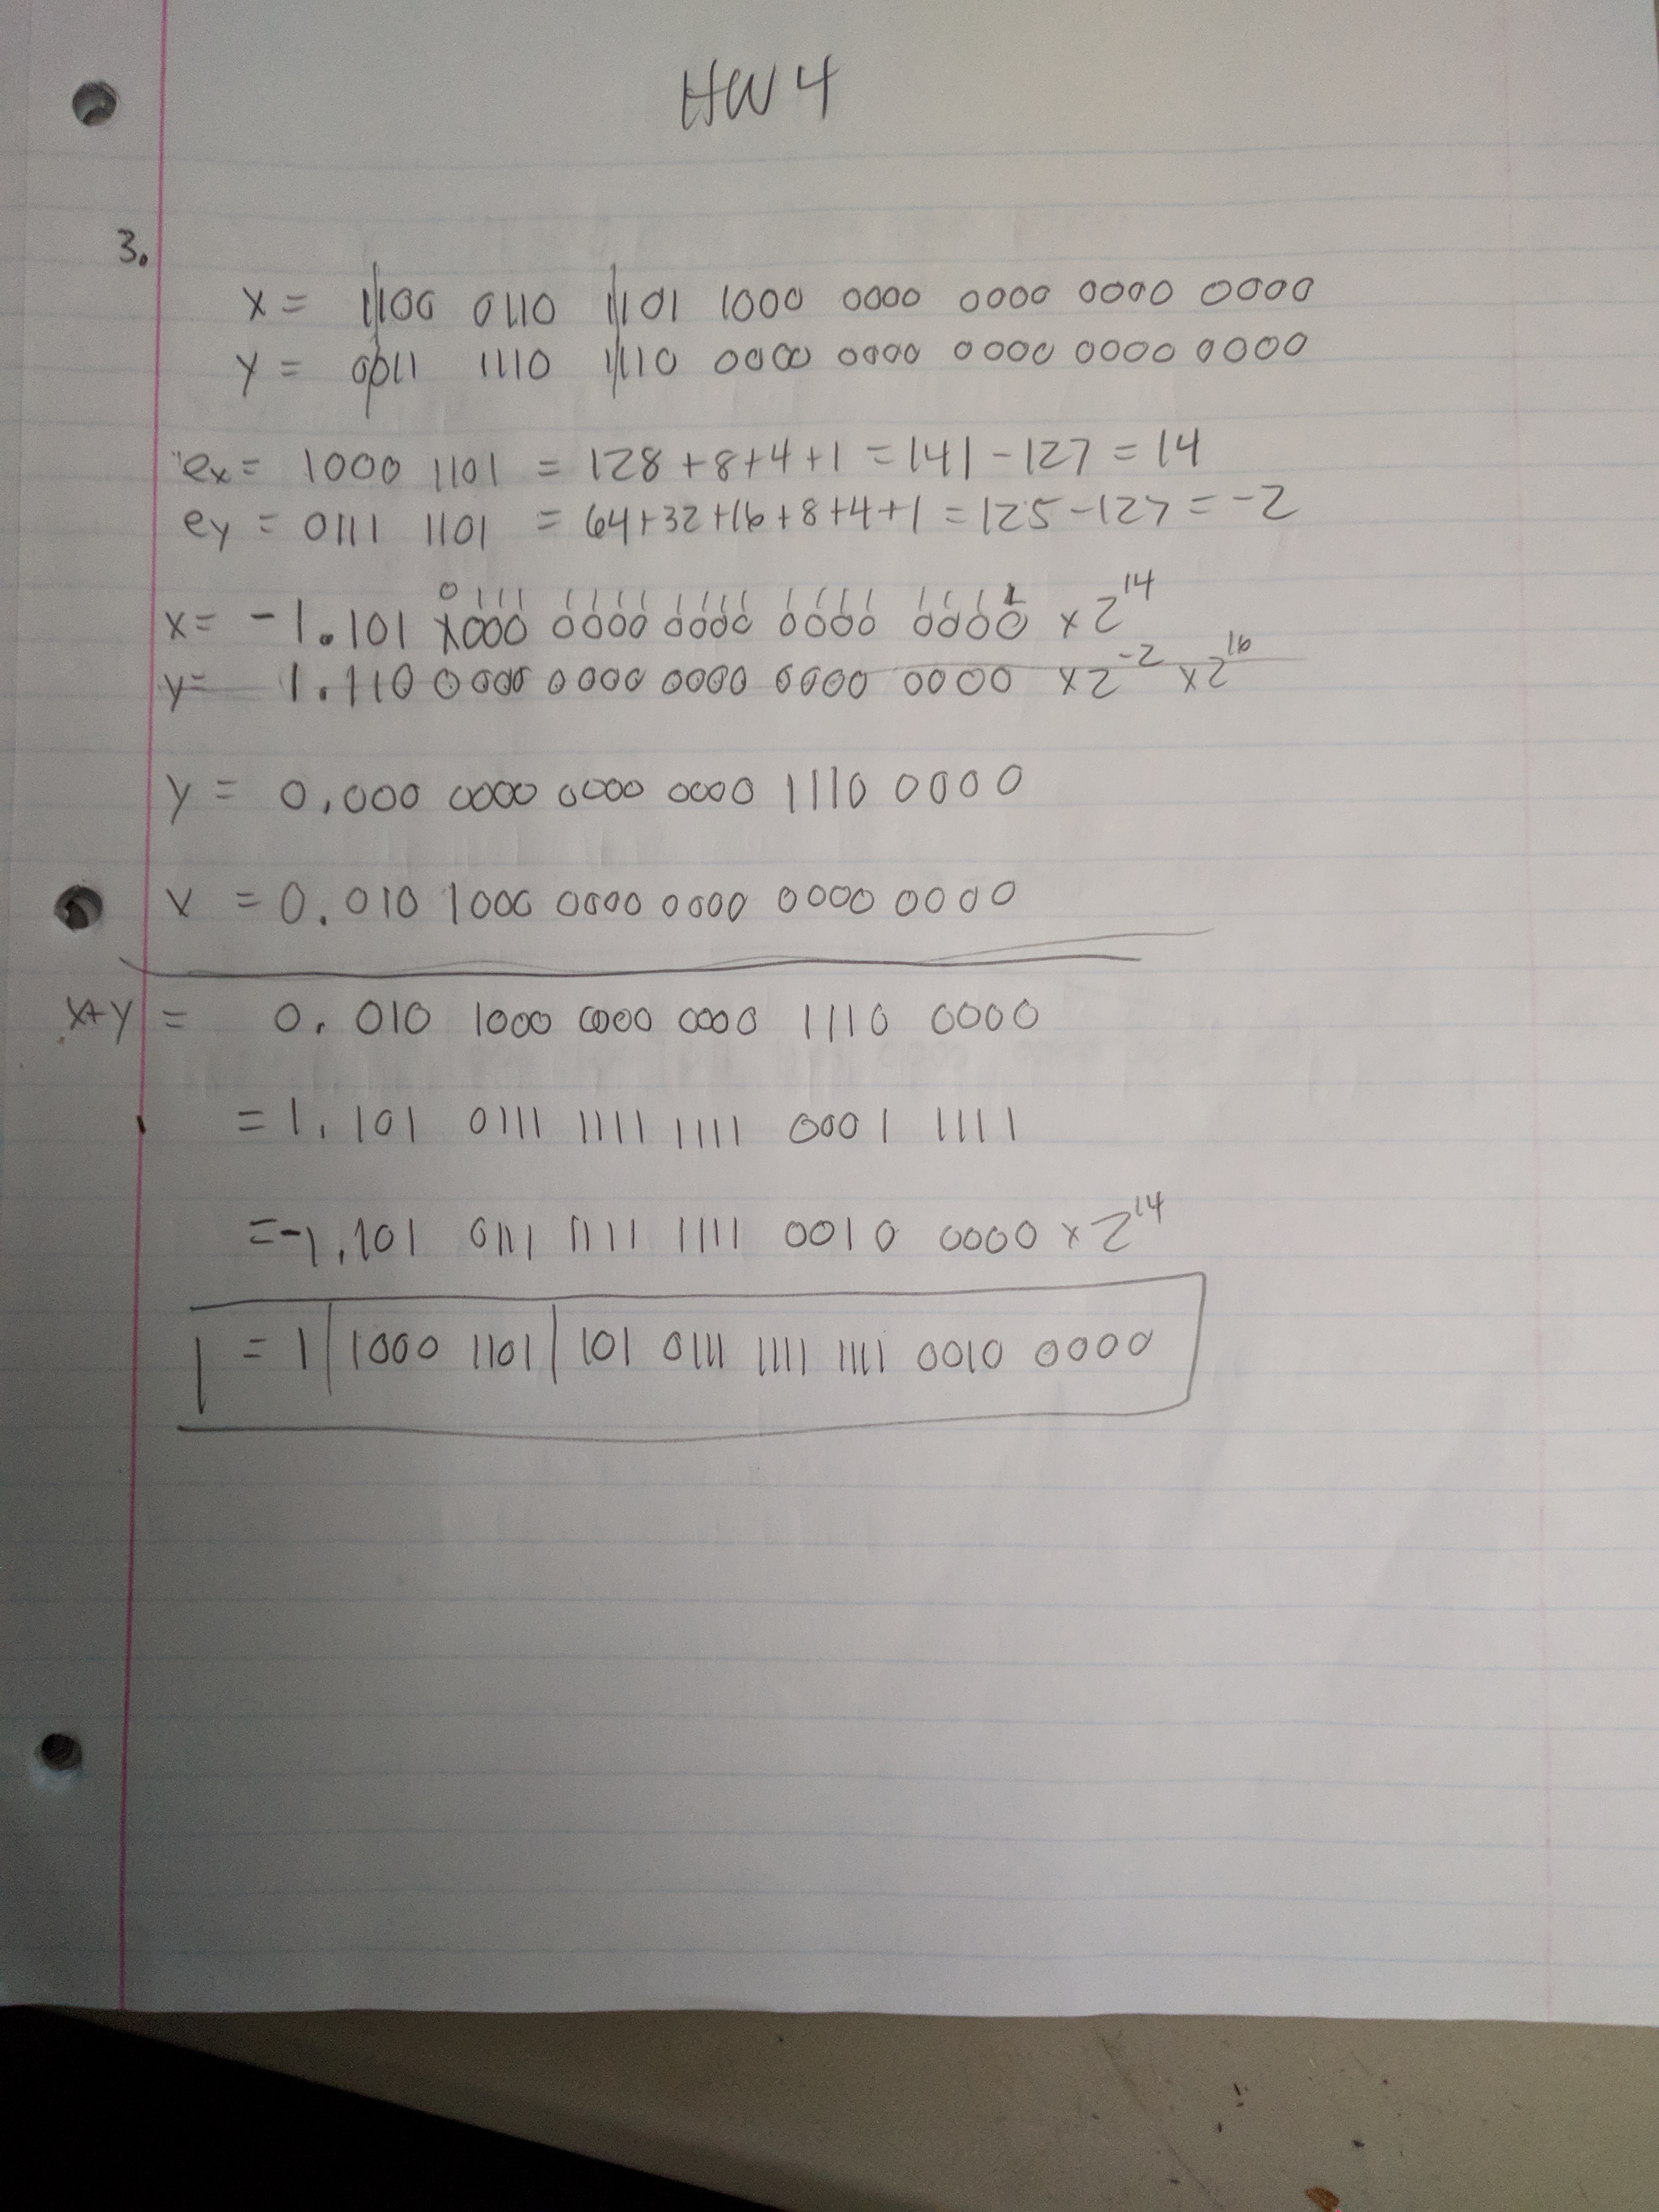 HW 4
3.
x = 1|100 0110 1|101 1000 0000 0000 0000 0000
y = 0|011 1110 1|110 0000 0000 0000 0000 0000
ex = 1000 1101 = 128+8+4+1 = 141-127 = 14
ey = 0111 1101 = 64+32+16+8+4+1 = 125-127 = -2
0111 1111 1111 1111 111
x = -1.101 1000 0000 0000 0000 0000 x 2^14
y = 1.110 0000 0000 0000 0000 0000 x 2^-2 x 2^16
y = 0.000 0000 0000 0000 1110 0000
x = 0.010 1000 0000 0000 0000 0000
x+y = 0.010 1000 0000 0000 1110 0000
= 1.101 0111 1111 1111 0001 1111
= -1.101 0111 1111 1111 0010 0000 x 2^14
= 1|1000 1101|101 0111 1111 1111 0010 0000